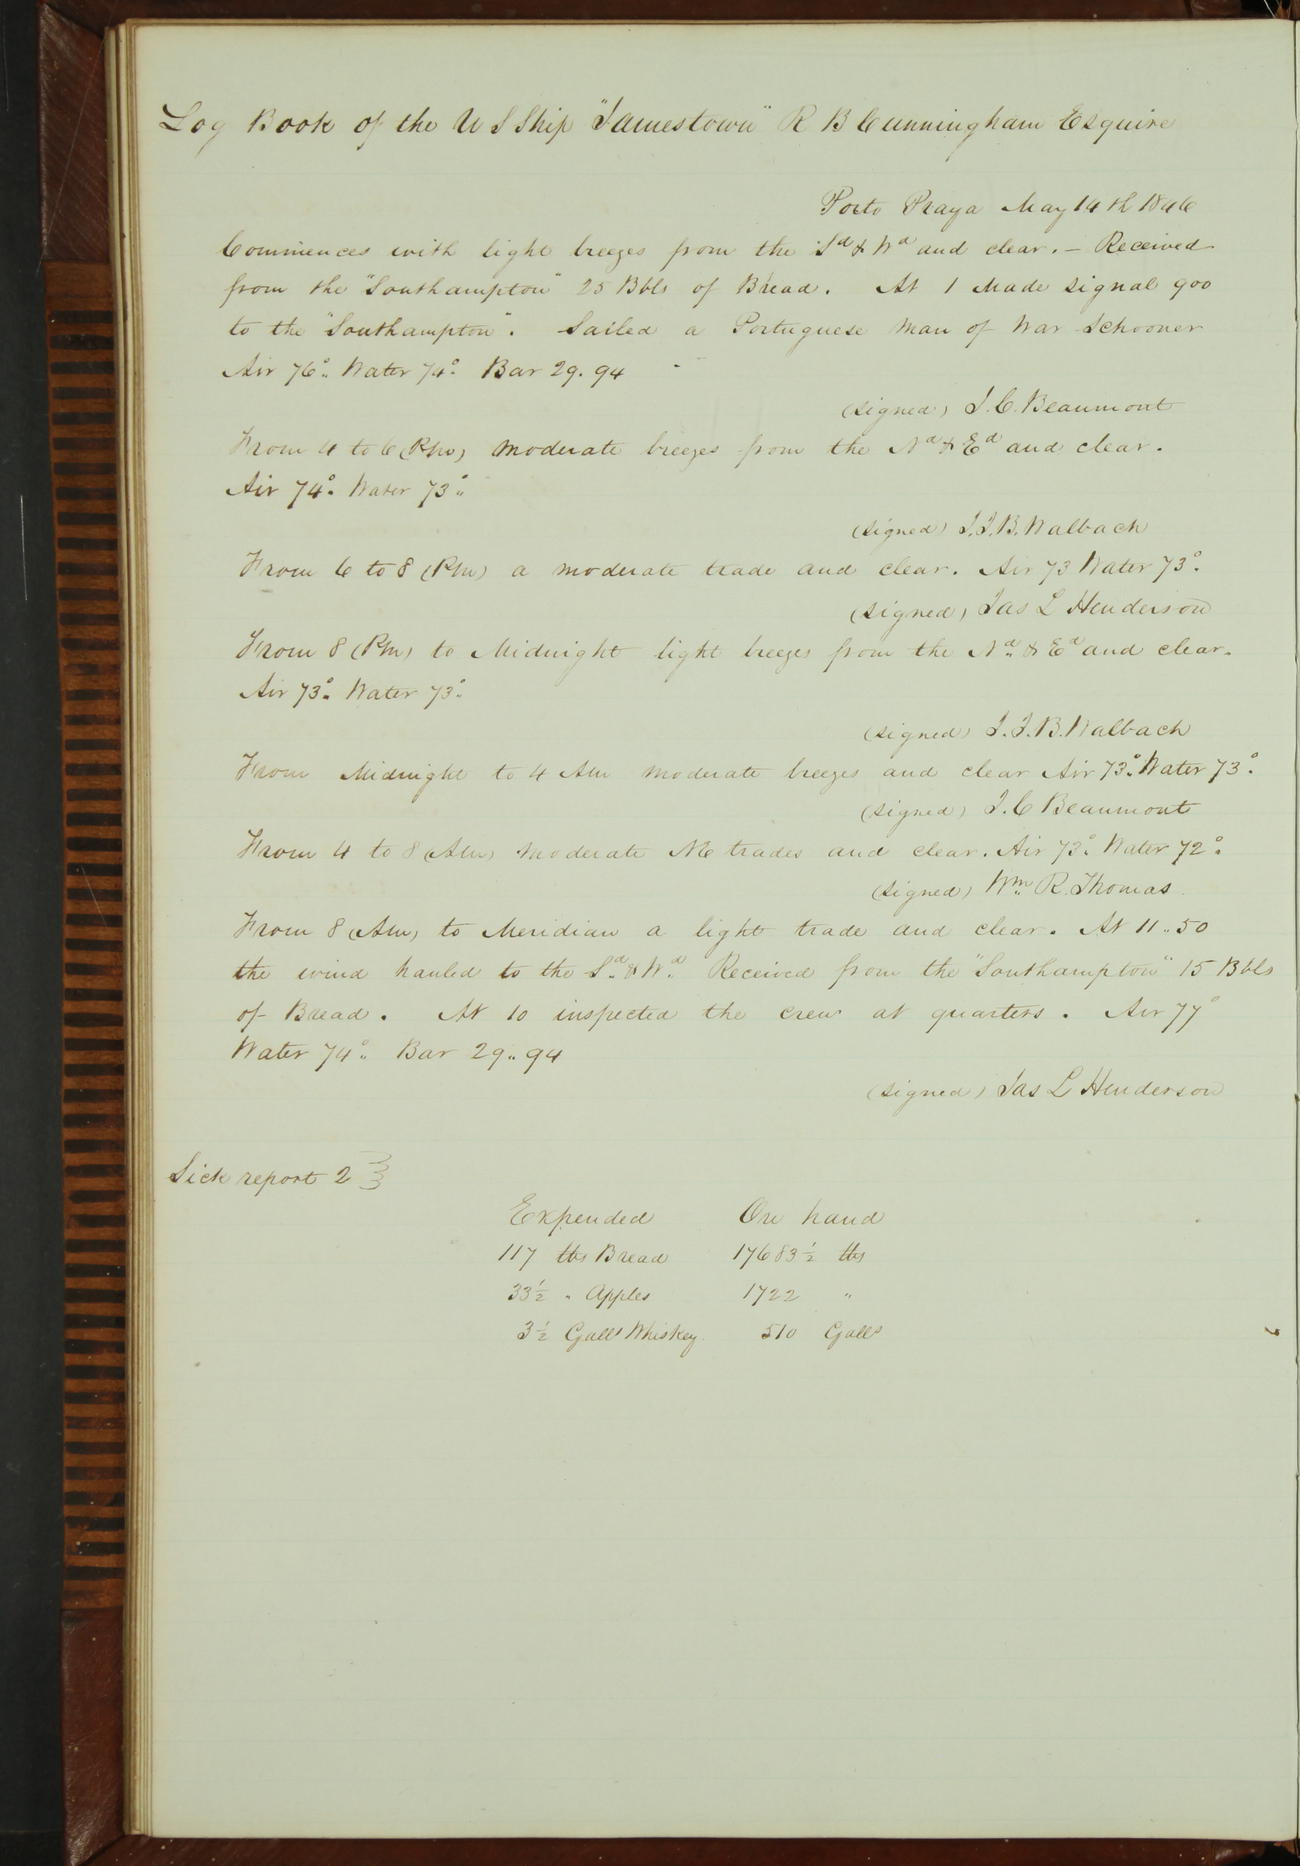 Log Book of the U S Ship "Jamestown" R B Cunningham Esquire
Porto Praya May 14th 1846
Commences with light breezes from the Sd & Wd and clear. — Received
from the "Southampton" 25 Bbls of Bread. At 1 Made signal 900
to the "Southampton". Sailed a Portuguese Man of War Schooner
Air 76°.. Water 74°. Bar 29.94
(signed) J. C. Beaumont
From 4 to 6 (Pm) moderate breezes from the Nd & Ed and clear.
Air 74°. Water 73°..
(signed) J. J. B. Walbach
From 6 to 8 (Pm) a moderate trade and clear. Air 73 Water 73°.
(signed) Jas L Henderson
From 8 (Pm) to Midnight light breezes from the Nd & Ed and clear.
Air 73°. Water 73°.
(signed) J. J. B. Walbach
From Midnight to 4 Am moderate breezes and clear Air 73°. Water 73°.
(signed) J. C Beaumont
From 4 to 8 (Am) moderate NE trades and clear. Air 73°. Water 72°.
(signed) Wm R. Thomas
From 8 (Am) to Meridian a light trade and clear. At 11..50
the wind hauled to the Sd & Wd Received from the "Southampton" 15 Bbls
of Bread. At 10 inspected the crew at quarters. Air 77°
Water 74°.. Bar 29..94
(signed) Jas L Henderson
Sick report 2
Expended On hand
117 lbs Bread 17683 1/2 lbs
33 1/2 " Apples 1722 "
3 1/2 Galls Whiskey. 510 Galls